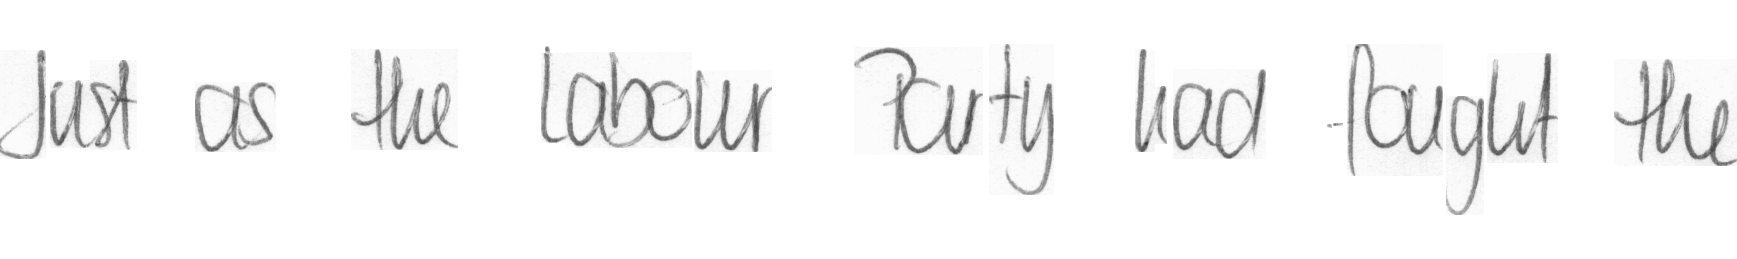 Just as the Labour Party had fought the